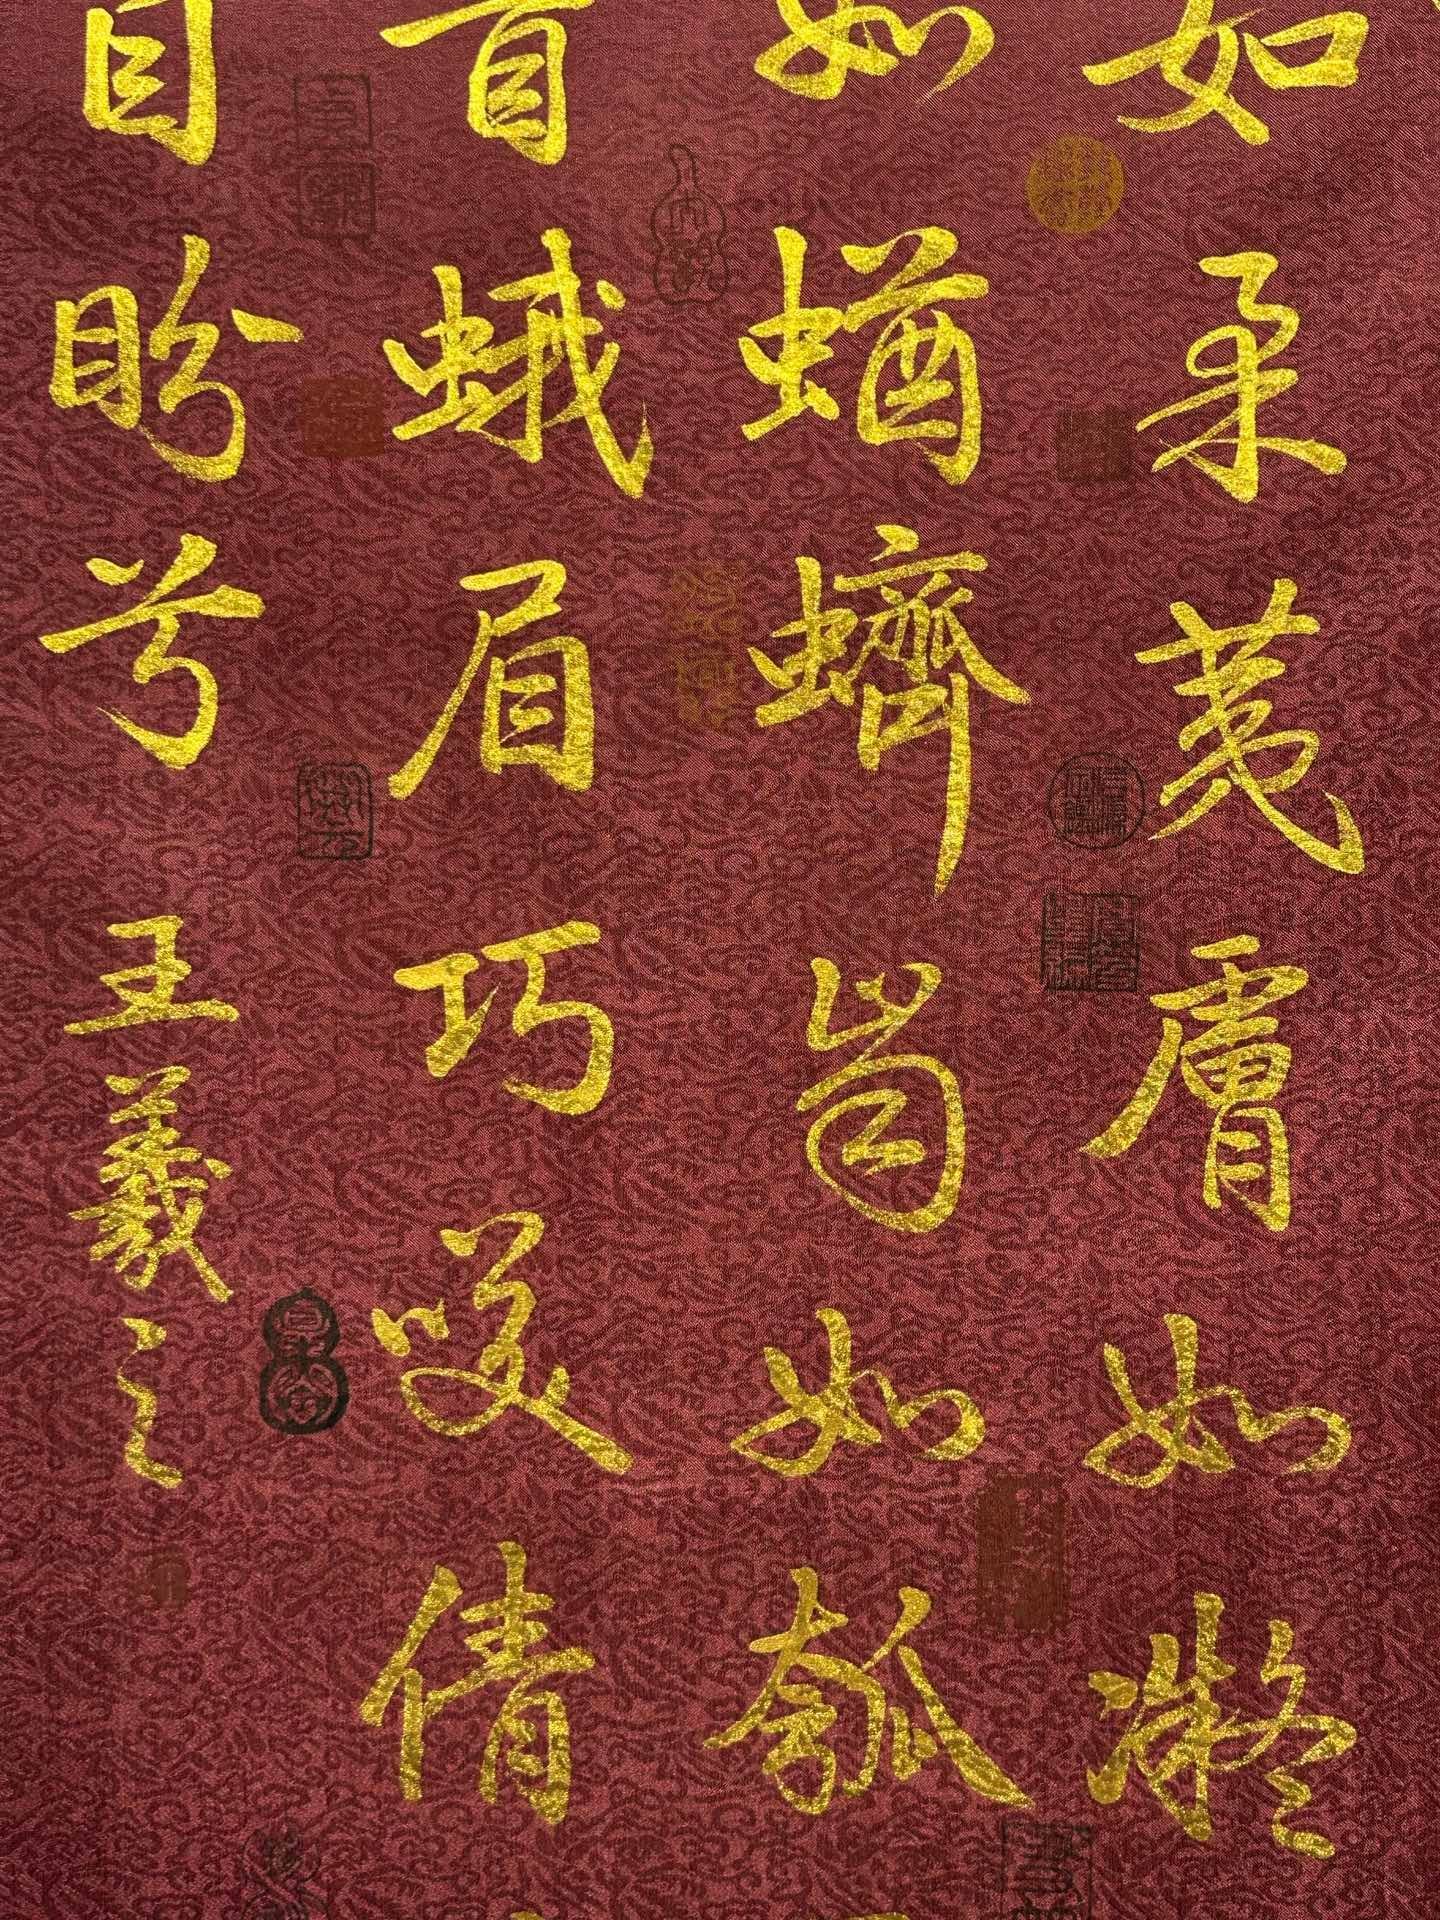 如柔荑膚如凝
如蝤蠐齒如瓠
首蛾眉巧咲倩
目盼兮王羲之